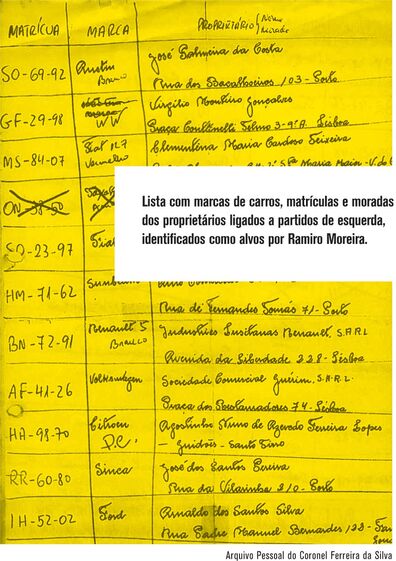 MATRÍCULA MARCA PROPRIETÁRIO/Nome
Morada
SO-69-92 Austin José Palmeira da Costa
Branco Rua dos Bacalhoeiros 103 - Porto
GF-29-98 WW Virgílio Monteiro Gonçalves
Praça 3-9ºA. Lisboa
MS-84-07 Fiat 127 Clementina Maria Cardoso Teixeira
Vermelho Maria Maior - V. do C
ON-38-50
SO-23-97 Fiat
Lista com marcas de carros, matrículas e moradas
dos proprietários ligados a partidos de esquerda,
identificados como alvos por Ramiro Moreira.
HM-71-62 Sunbeam
Rua de Fernandes Tomás 71 - Porto
BN-72-91 Renault 5 Industrias Lusitanas Renault, S.A.R.L
Branco Avenida da Liberdade 228 - Lisboa
AF-41-26 Volkswagen Sociedade Comercial Guérin, S.A.R.L.
Praça dos Restauradores 74 - Lisboa
HA-98-70 Citroen Agostinho Nuno de Azevedo Ferreira Lopes
D.C. - Guidões - Santo Tirso
RR-60-80 Simca José dos Santos Pereira
Rua da Vilarinha 210 - Porto
IH-52-02 Ford Arnaldo dos Santos Silva
Rua Padre Manuel Bernardes 128 -
Arquivo Pessoal do Coronel Ferreira da Silva